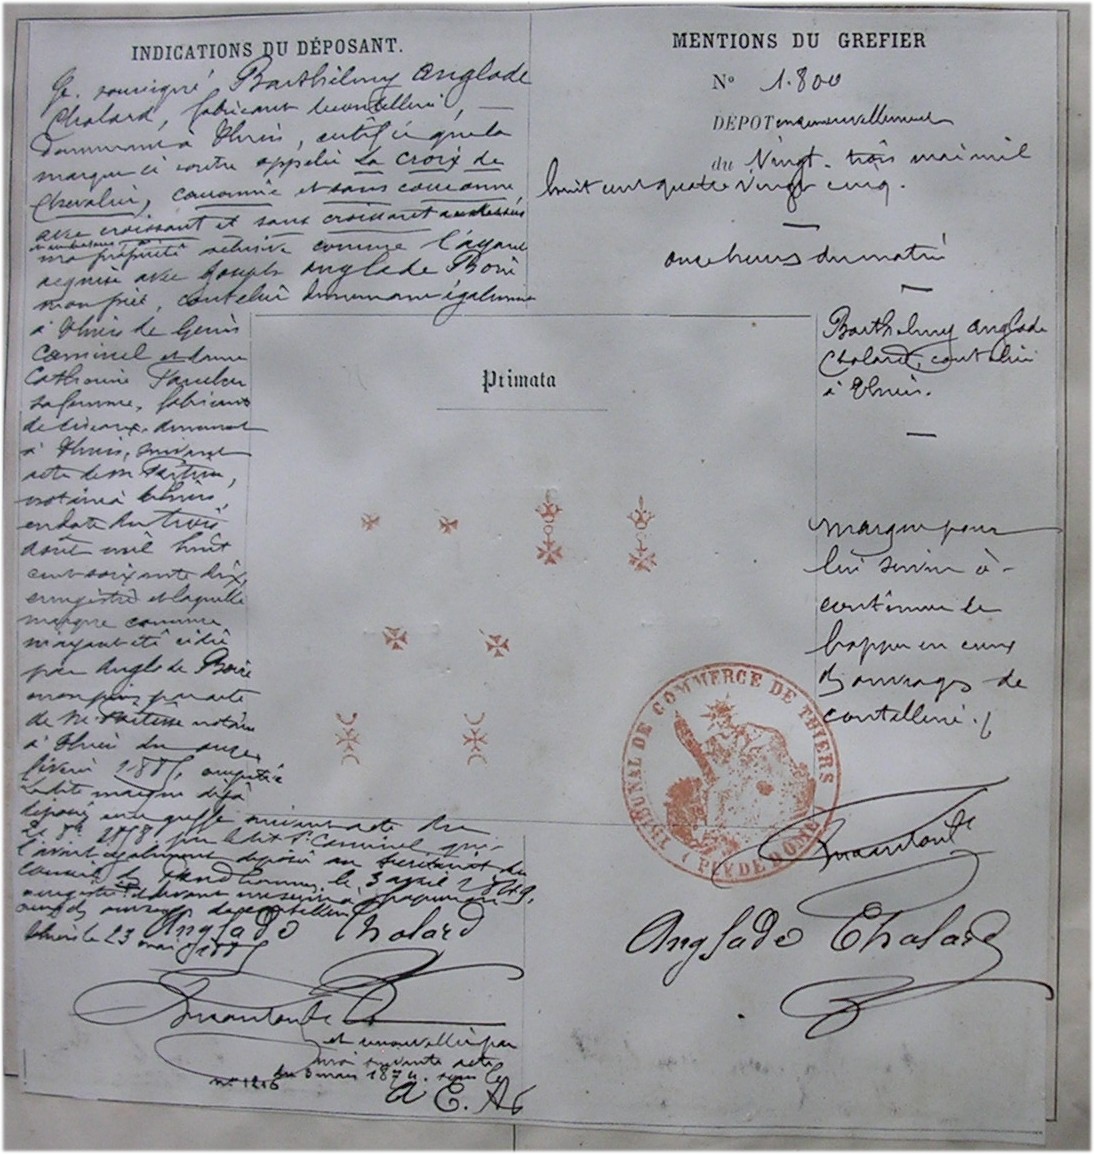 INDICATIONS DU DÉPOSANT.
Je soussigné Barthélmy Anglade
Cholard, fabricant
à Thiers, certifie que la
marque ci contre appelée La croix de
Chevalier, couronnée et sans couronne
avec croissant et sans croissant
ma propriété exclusive comme l'ayant
acquise avec Joseph Anglade Boire
mon frère, coutelier demeurant également
à Thiers de Genis
Caminel et dame
Catherine
sa femme, fabricant
de ciseaux, demeurant
à Thiers, suivant
acte de me
notaire à Thiers,
en date du trois
août mil huit
cent soixante dix,
enregistré et laquelle
marque comme
m'ayant été cédée
par Anglade Boire
mon frère, par acte
de Me notaire
à Thiers du onze
février 1885,
Ladite marque déjà
déposée au greffe suivant acte du
1858 par ledit Sr Caminel qui
l'avait également déposée au secrétariat du
conseil de Prud'hommes, le 3 avril 1849,
ouvrages de coutellerie
Thiers le 23 mai 1885
Anglade Cholard
et renouvellée par
moi suivante acte
du 6 mars 1874 sous le
no 1216
A C. Ab
MENTIONS DU GREFIER
No 1.800
DEPOT en renouvellement
du Vingt-trois mai mil
huit cent quatre vingt cinq.
onze heures du matin
Barthélmy Anglade
Cholard, coutelier
à Thiers.
Primata
Marque pour
lui servir à
continuer de
frapper en creux
d'ouvrages de
coutellerie.
TRIBUNAL DE COMMERCE DE THIERS
(PUY DE DOME)
Anglade Cholard